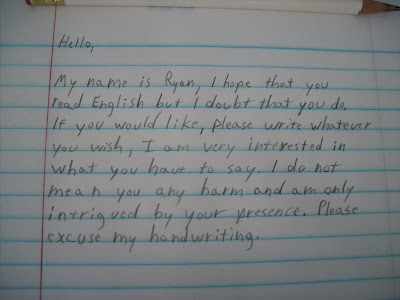 Hello,
My name is Ryan, I hope that you
read English but I doubt that you do.
If you would like, please write whatever
you wish, I am very interested in
what you have to say. I do not
mean you any harm and am only
intrigued by your presence. Please
excuse my handwriting.